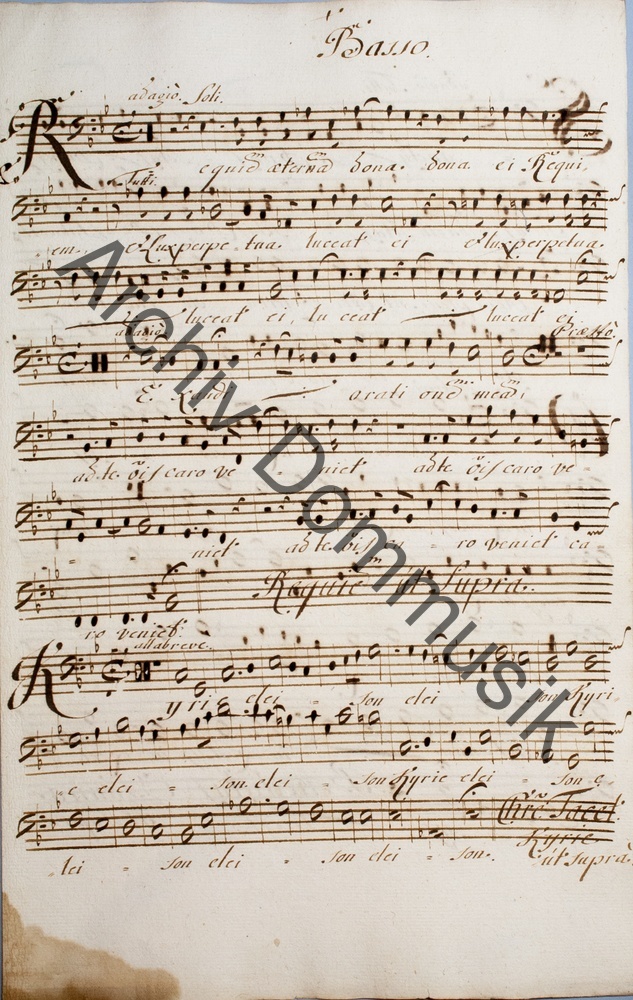 Basso.
adagio. Soli.
Requiē æternā dona. dona ei Requi,
Tutti.
em. et Lux perpe tua. luceat ei et lux perpetua.
luceat ei, lu ceat luceat ei
adagio Præsto
Exaudi orati onē meā,
ad te oīs caro ve = niet ad te oīs caro ve =
niet ad te oīs ca = ro veniet ca =
Requiē ut Supra.
ro veniet.
allabreve.
Kyrie elei = son elei = son Kyri
e elei = son. elei = son Kyrie elei = son e =
lei = son elei = son elei = son.
Chrē Tacet.
Kyrie
ut supra.
Archiv Dommusik